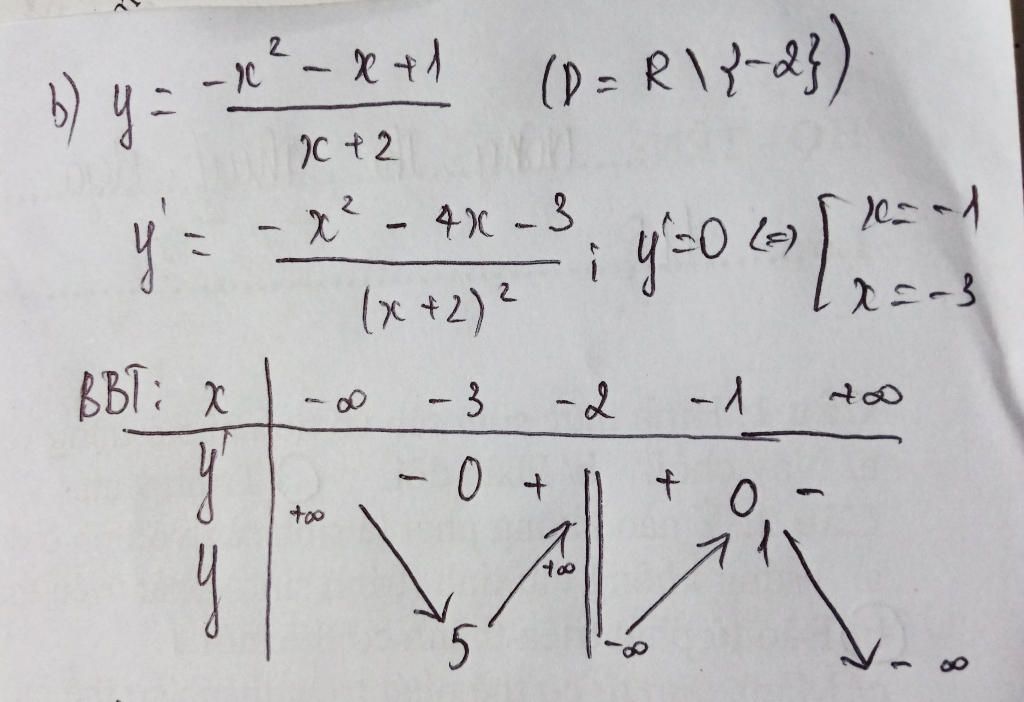 b) y = (-x² - x + 1)/(x + 2) (D = R \ {-2})
y' = (-x² - 4x - 3)/(x + 2)² ; y' = 0 ⇔ [ x = -1
x = -3
BBT: x | -∞ -3 -2 -1 +∞
y' | - 0 + || + 0 -
y | +∞ ↘ 5 ↗ +∞ || -∞ ↗ 1 ↘ -∞